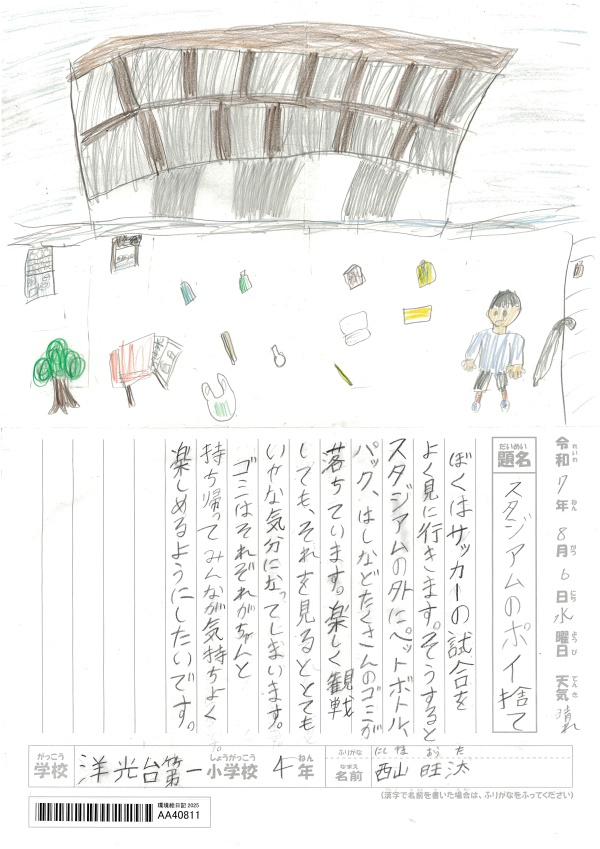 令和7年8月6日水曜日 天気 晴れ
題名 スタジアムのポイ捨て
ぼくはサッカーの試合を
よく見に行きます。そうすると
スタジアムの外にペットボトル、
パック、はしなどたくさんのゴミが
落ちています。楽しく観戦
しても、それを見るととても
いやな気分になってしまいます。
ゴミはそれぞれがちゃんと
持ち帰ってみんなが気持ちよく
楽しめるようにしたいです。
がっこう しょうがっこう ねん
学校 洋光台第一小学校 4年
ふりがな にしやま おうた
なまえ
名前 西山 旺汰
(漢字で名前を書いた場合は、ふりがなをふってください)
環境絵日記 2025
AA40811